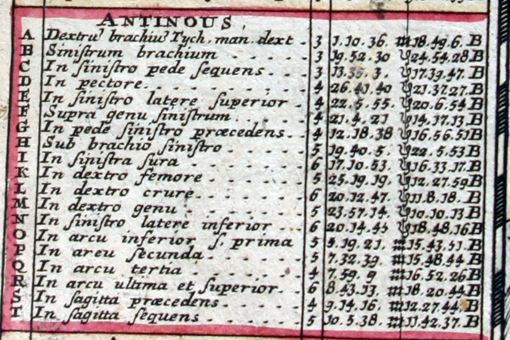 ANTINOUS,
A Dextrũ brachiũ Tych. man. dext. 3 1.10.36. ♒ 18.49.6. B
B Siniſtrum brachium 3 19.52.30 ♑ 24.54.28. B
C In ſiniſtro pede ſequens. 3 13.35.3. ♑ 17.39.47. B
D In pectore. 4 26.41.40 ♑ 21.37.27. B
E In ſiniſtro latere ſuperior 4 22.5.55. ♑ 20.6.54 B
F Supra genu ſiniſtrum 4 21.4.21 ♑ 14.17.13. B
G In pede ſiniſtro præcedens. 4 12.18.38 ♑ 16.56.51 B
H Sub brachio ſiniſtro 5 19.40.5. ♑ 22.5.53 B
I In ſiniſtra ſura 6 17.10.53. ♑ 16.33.17. B
K In dextro femore 5 25.19.19. ♑ 12.27.59 B
L In dextro crure 6 20.12.47. ♑ 11.8.18. B
M In dextro genu 5 23.57.14. ♑ 10.10.13 B
N In ſiniſtro latere inferior 6 20.14.45 ♑ 18.48.16 B
O In arcu inferior ſ. prima 5 5.19.21. ♒ 15.43.51. B
P In arcu ſecunda 5 7.32.39. ♒ 15.48.44 B
Q In arcu tertia 4 7.59.9 ♒ 16.52.26 B
R In arcu ultima et ſuperior. 6 8.43.13. ♒ 18.20.44 B
S In ſagitta præcedens 4 9.14.16. ♒ 12.27.44. B
T In ſagitta ſequens. 5 10.5.38. ♒ 11.42.37. B